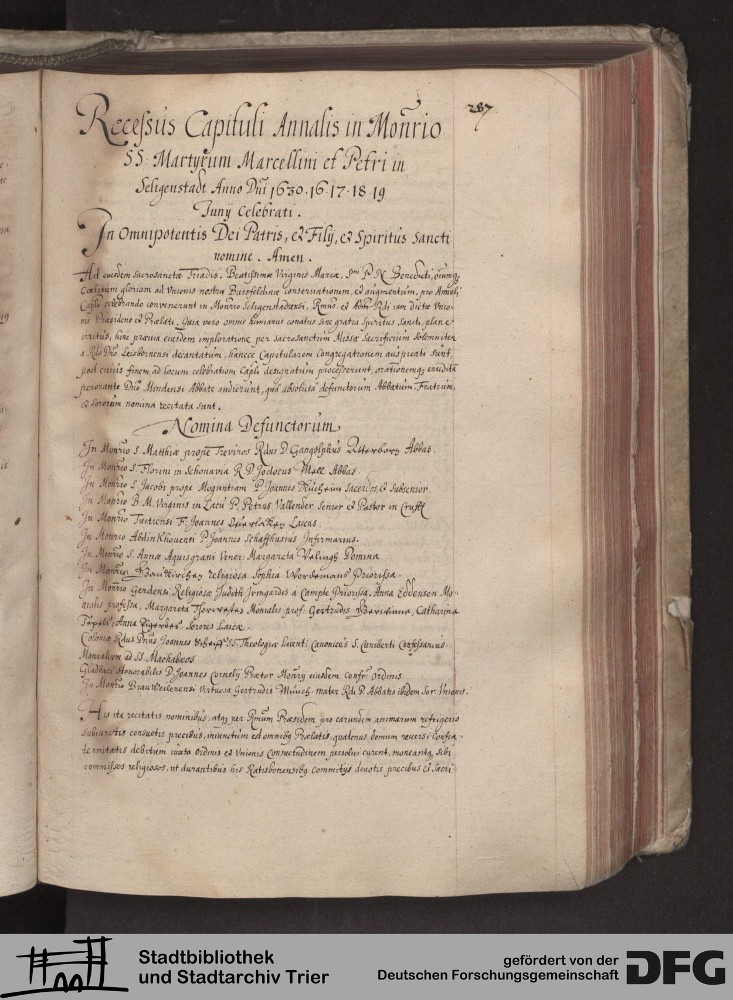 287
Recessus Capituli Annalis in Moñrio
SS. Martyrum Marcellini et Petri in
Seligenstadt Anno Dñi 1630. 16. 17. 18. 19
Junij Celebrati.
In Omnipotentis Dei Patris, et Filij, et Spiritus Sancti
nomine. Amen.
Ad eiusdem Sacrosanctæ Triadis, Beatissimæ Virginis Mariæ, Smi P. N. Benedicti, omniumq;
Cœlitum gloriam ad Unionis nostræ Bursfeldicæ conseruationem, et augmentum, pro Annali
Caplo celebrando convenerunt in Moñrio Seligenstadiensi, Rmus et Rdi iam dictæ Unio-
nis Præsidens et Prælati. Quia vero omnis humanus conatus sine gratia Spiritus Sancti, plane
irritus, hinc prævia eiusdem imploratione per sacrosanctum Missæ Sacrificium solenniter
a Rdo Dño Leisbornensi decantatum, hancce Capitularem Congregationem auspicati sunt,
post cuius finem ad locum celebrationi Capli designatum processerunt, orationemq; eruditã
perorante Dño Mindensi Abbate audierunt, qua absoluta defunctorum Abbatum, Fratrum,
et Sororum nomina recitata sunt.
Nomina Defunctorum
In Moñrio S. Matthiæ prope Treviros Rdus D. Gangolphus Abbas.
In Moñrio S. Florini in Schonavia R. D. Jodocus Abbas.
In Moñrio S. Jacobi prope Moguntiam P. Joannes Mülheim Sacerdos et Subsenior.
In Moñrio B. M. Virginis in Lacu P. Petrus Vallender Senior et Pastor in Crufft
In Moñrio Tuitiensi F. Joannes Laicus.
In Moñrio Abdinkhovensi P. Joannes Schaffhusius Infirmarius.
In Moñrio S. Annæ Aquisgrani Vener. Margareta Domina
In Moñrio religiosa Sophia Priorissa.
In Moñrio Gerdensi Religiosæ Judith Irmgardis a Campe Priorissa, Anna Eddensen Mo-
nialis professa, Margareta Monialis prof. Gertrudis Catharina
Anna Sorores Laicæ.
Coloniæ Rdus Dñus Joannes SS. Theologiæ Licent. Canonicus S. Cuniberti Confessarius
Monialium ad SS. Machabæos
Gladbaci Honorabilis D. Joannes Cornelij Prætor Moñrij eiusdem confr. Ordinis
In Moñrio Brauweilerensi Virtuosa Gertrudis Münch mater Rdi P. Abbatis ibidem Sor. Unionis.
His ite recitatis nominibus, atq; per Rmum Præsidem pro earundem animarum refrigerio
subiunctis consuetis precibus, iniunctum est omnibq Prælatis, quatenus domum reversi Confra-
ternitatis debitum iuxta Ordinis et Unionis Consuetudinem persolui curent, moneantq; sibi
commissos religiosos, ut durantibus his Ratisbonensibq Commitijs deuotis precibus et Sacri-
Stadtbibliothek
und Stadtarchiv Trier
gefördert von der
Deutschen Forschungsgemeinschaft
DFG